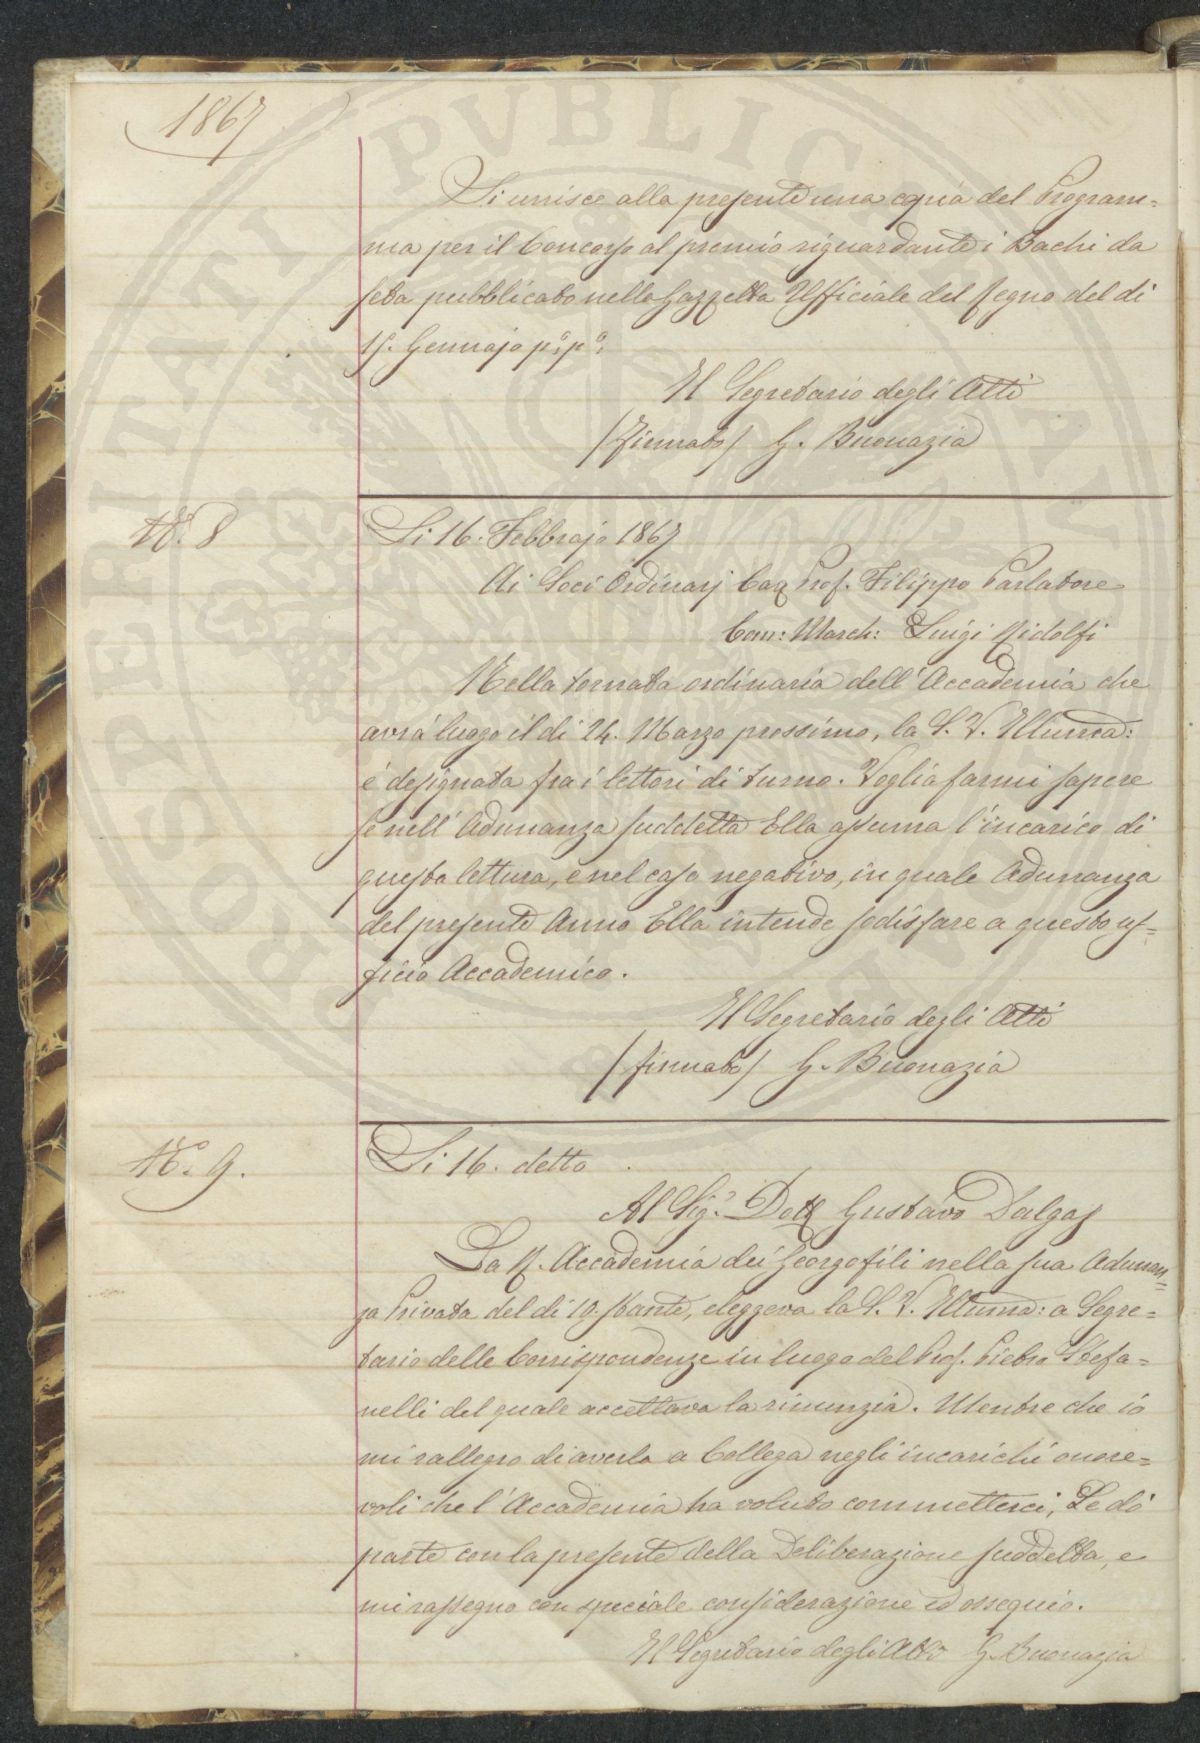 1867
Si unisce alla presente una copia del Program=
ma per il Concorso al premio riguardante i Bachi da
seta pubblicato nella Gazzetta Ufficiale del Regno del di
Gennajo p.º p.º
Il Segretario degli Atti
/firmato/ G. Buonazia
N.º 8
Li 16. Febbrajo 1867
Ai Soci Ordinarj Cav Prof. Filippo Parlatore
March: Luigi Ridolfi
Nella tornata ordinaria dell'Accademia che
avrà luogo il di 24. Marzo prossimo, la S. V. Illuma:
é designata fra i lettori di turno. Voglia farmi sapere
se nell'Adunanza suddetta Ella assuma l'incarico di
questa lettura, e nel caso negativo, in quale Adunanza
del presente Anno Ella intende sodisfare a questo uf=
ficio Accademico.
Il Segretario degli Atti
/firmato/ G. Buonazia
N.º 9.
Li 16. detto
Al Sig.r Dott Gustavo Dalgas
La R. Accademia dei Georgofili nella sua Adunan=
za Privata del di 10. stante, eleggeva la S. V. Illuma: a Segre=
tario delle Corrispondenze in luogo del Prof. Pietro Stefa=
nelli del quale accettava la rinunzia. Mentre che io
mi rallegro di averla a Collega negli incarichi onore=
voli che l'Accademia ha voluto commetterci, Le dó
parte con la presente della Deliberazione suddetta, e
mi rassegno con speciale considerazione ed ossequio.
Il Segretario degli Atti G. Buonazia
PROSPERITATI PVBLICAE AVGENDAE